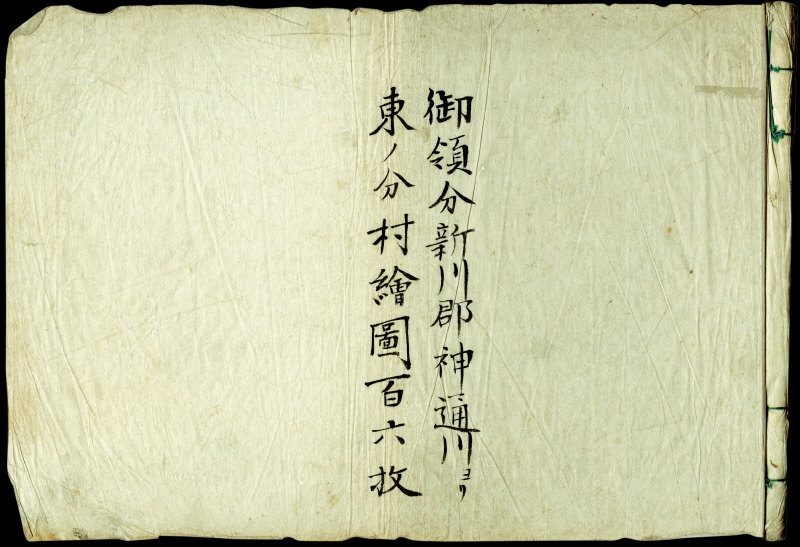 御領分新川郡神通川ヨリ
東ノ分村繪圖百六枚